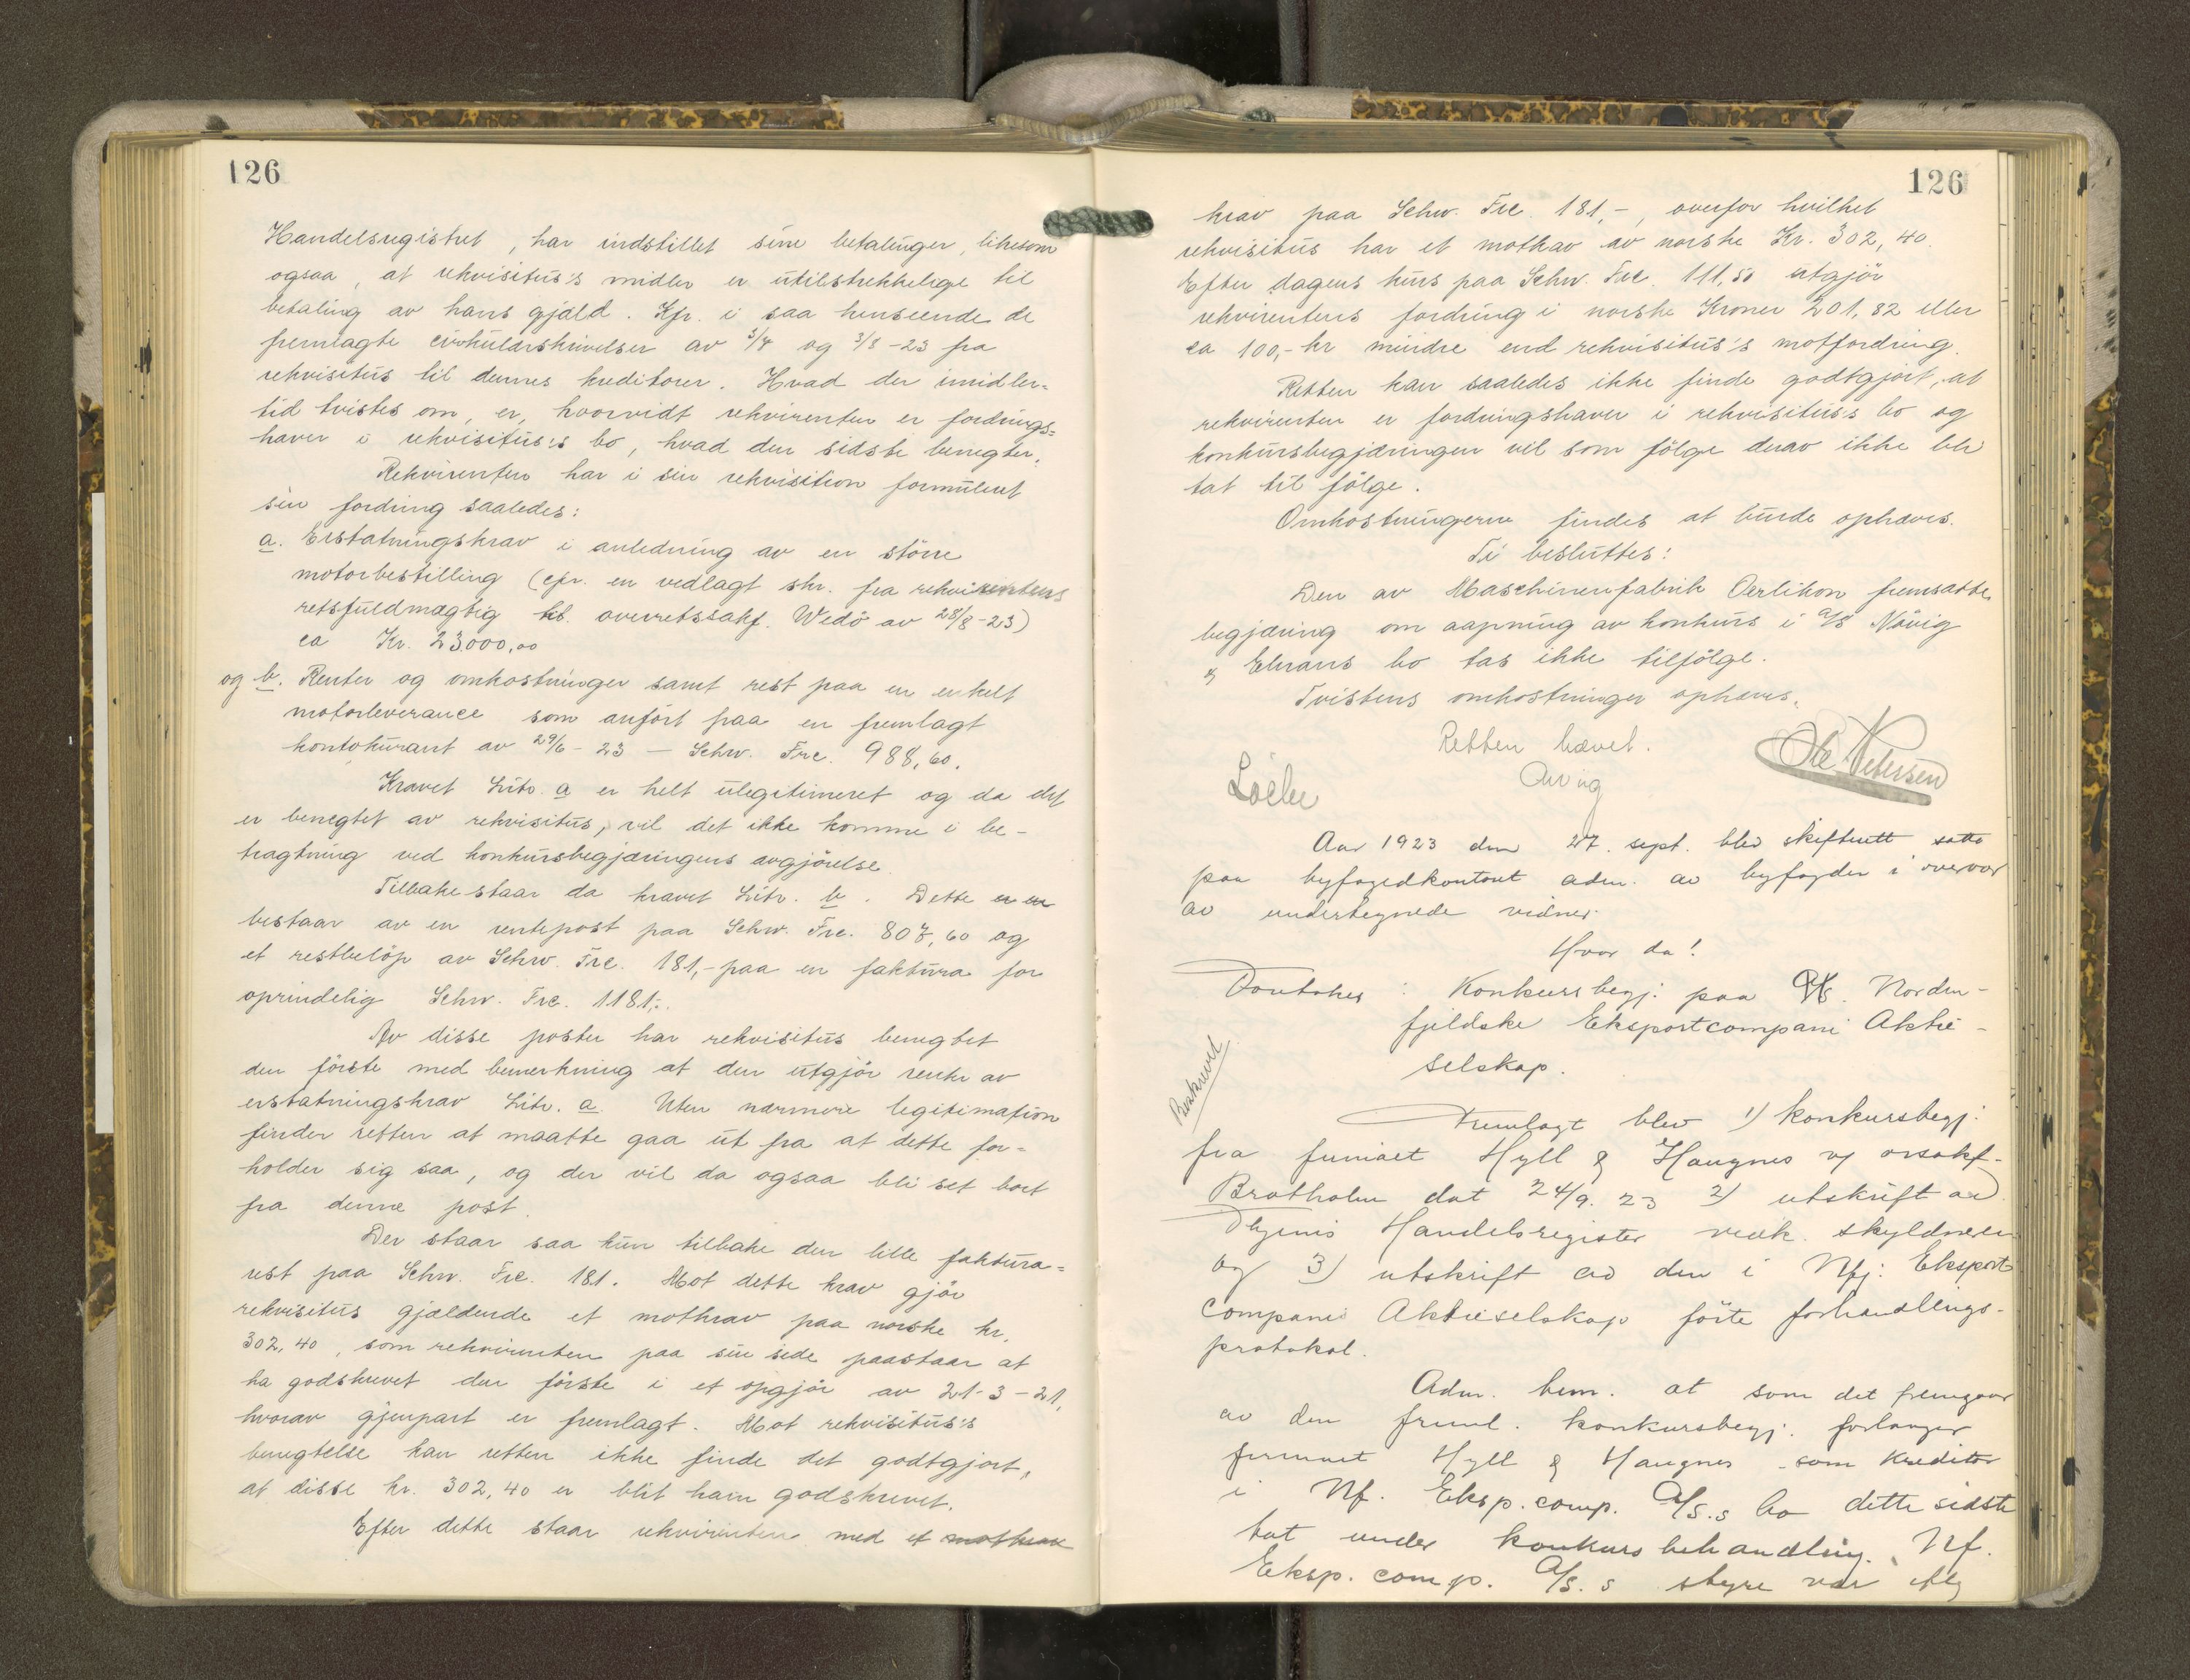 126
Handelsregistret, har indstillet sine betalinger, likesom
ogsaa, at rekvisitus's midler er utilstrekkelige til
betaling av hans gjæld. Kfr. i saa henseende de
fremlagte cirkulærskrivelser av 3/4 og 3/8-23 fra
rekvisitus til dennes kreditorer. Hvad der imidler=
tid tvistes om, er, hvorvidt rekvirenten er fordrings=
haver i rekvisitus's bo, hvad den sidste benegter.
Rekvirenten har i sin rekvisition formulert
sin fordring saaledes:
a. Erstatningskrav i anledning av en större
motorbestilling (cfr. en vedlagt skr. fra rekvirentens
retsfuldmægtig hr. overretssakf. Wedö av 28/8-23)
ca Kr. 23000,00
og b. Renter og omkostninger samt rest paa en enkelt
motorleverance som anfört paa en fremlagt
kontokurant av 29/6-23 — Schw. Frc. 988,60.
Kravet Litr. a er helt ulegitimeret og da det
er benegtet av rekvisitus, vil det ikke komme i be-
tragtning ved konkursbegjæringens avgjörelse.
Tilbake staar da kravet Litr. b. Dette er en
bestaar av en rentepost paa Schw. Frc. 807,60 og
et restbelöp av Schw. Frc. 181,- paa en faktura for
oprindelig Schw. Frc. 1181,-.
Av disse poster har rekvisitus benegtet
den förste med bemerkning at den utgjör renter av
erstatningskrav Litr. a. Uten nærmere legitimation
finder retten at maatte gaa ut fra at dette for=
holder sig saa, og der vil da ogsaa bli set bort
fra denne post.
Der staar saa kun tilbake den lille faktura=
rest paa Schw. Frc. 181. Mot dette krav gjör
rekvisitus gjældende et motkrav paa norske kr.
302,40, som rekvirenten paa sin side paastaar at
ha godskrevet den förste i et opgjör av 21-3-21,
hvorav gjenpart er fremlagt. Mot rekvisitus's
benegtelse kan retten ikke finde det godtgjort,
at disse kr. 302,40 er blit ham godskrevet.
Efter dette staar rekvirenten med et motkrav
126
krav paa Schw. Frc. 181,-, overfor hvilket
rekvisitus har et motkrav av norske Kr. 302,40.
Efter dagens kurs paa Schw. Frc. 111,50 utgjör
rekvirentens fordring i norske Kroner 201,82 eller
ca 100,- kr mindre end rekvisitus's motfordring.
Retten kan saaledes ikke finde godtgjort, at
rekvirenten er fordringshaver i rekvisitus's bo og
konkursbegjæringen vil som fölge derav ikke bli
tat til fölge.
Omkostningerne findes at burde ophæves.
Ti besluttes:
Den av Maschinenfabrik Oerlikon fremsatte
begjæring om aapning av konkurs i A/S Növig
& Ehrans bo tas ikke tilfölge.
Tvistens omkostninger ophæves.
Retten hævet.
Ole Petersen
Aar 1923 den 27. sept. blev skifterett satt
paa byfogedkontoret adm. av byfogden i overvær
av undertegnede vidner.
Hvor da!
Foretokes: Konkursbegj: paa A/S. Norden-
fjeldske Eksportcompani Aktie-
selskap.
Beskrevet
Fremlagt blev 1) konkursbegj:
fra firmaet Hyll & Haugnes v/ orsakf.
Bratholm dat 24/9. 23 2) utskrift av
Byens Handelsregister vedk. skyldneren
og 3) utskrift av den i Nfj: Eksport
Companis Aktieselskap förte forhandlings-
protokol.
Adm. bem. at som det fremgaar
av den freml. konkursbegj: forlanger
firmaet Hyll & Haugnes som kreditor
i Nf. Eksp. comp. A/S.s bo dette sidste
tat under konkursbehandling. Nf.
Eksp. comp. A/S.s styre var